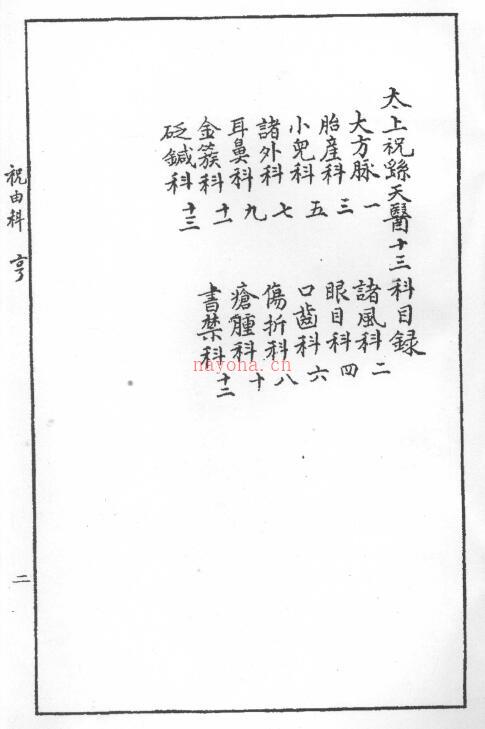 太上祝繇天醫十三科目録
大方脉 一 諸風科 二
胎産科 三 眼目科 四
小兒科 五 口齒科 六
諸外科 七 傷折科 八
耳鼻科 九 瘡腫科 十
金簇科 十一 書禁科 十二
砭鍼科 十三
祝由科 亨
二
nayona.cn